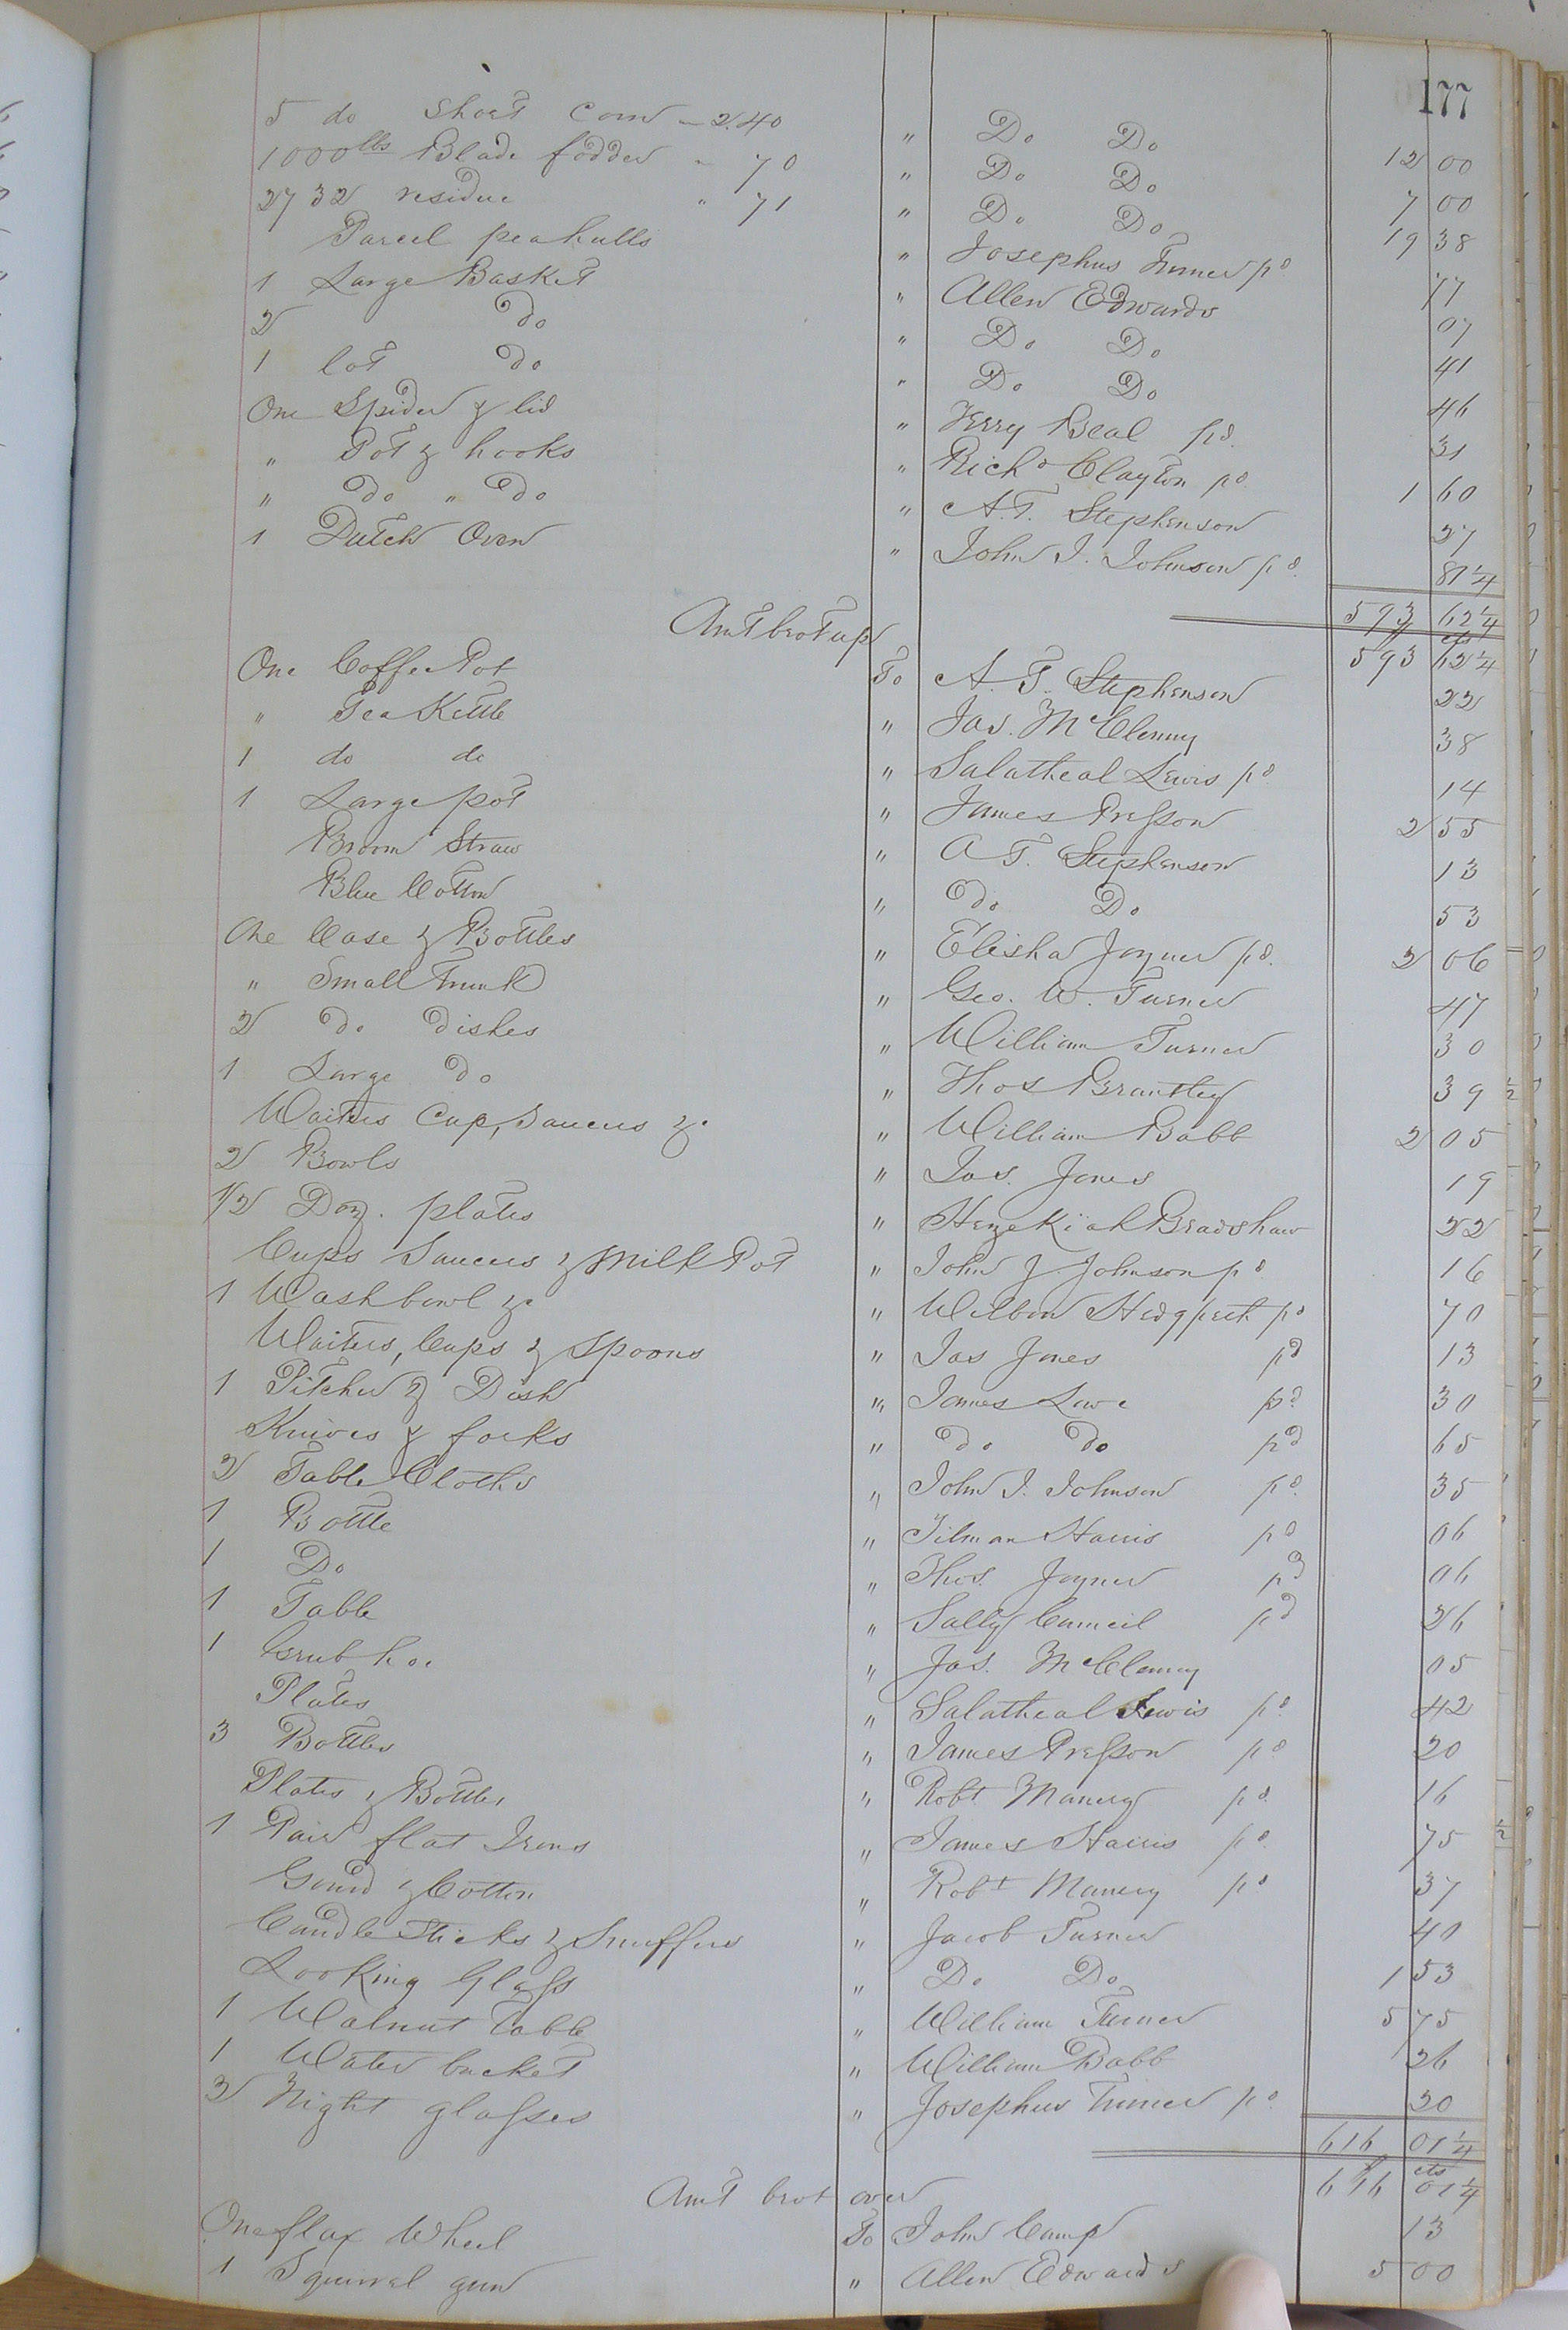 177
5 do Short Corn - 2.40 " Do Do 12 00
1000 lbs Blade fodder - 70 " Do Do 7 00
2732 residue " 71 " Do Do 19 38
Parcel peahulls " Josephus Turner pd. 77
1 Large Basket " Allen Edwards 07
2 Do " Do Do 41
1 lot Do " Do Do 46
One Spider & lid " Jerry Beal pd. 31
" Pot & hooks " Richd Clayton pd. 1 60
" Do " Do " A.T. Stephenson 27
1 Dutch Oven " John J. Johnson pd. 81 1/4
593 62 1/4
Amt brot up $ 593 cts 62 1/4
One Coffee Pot To A. T. Stephenson 22
" Tea Kettle " Jas. McClenny 38
1 do do " Salatheal Lewis pd. 14
1 Large pot " James Presson 2 55
Broom Straw " A T. Stephenson 13
Blue Cotton " Do. Do 53
One Case & Bottles " Elisha Joyner pd. 2 06
" Small Trunk " Geo. W. Turner 47
2 Do Dishes " William Turner 30
1 Large Do " Thos Brantley 39
Waiters Cup, Saucers &c " William Babb 2 05
2 Bowls " Jas. Jones 19
1/2 Doz. plates " Hezekiah Bradshaw 22
Cups Saucers & Milk Pot " John J Johnson pd 16
1 Washbowl &c " Hedgpeth pd 70
Waiters, Cups & Spoons " Jas Jones pd 13
1 Pitcher & Dish " James Lowe pd. 30
Knives & forks " Do Do pd 65
2 Table Cloths " John J. Johnson pd. 35
1 Bottle " Tilman Harris pd 06
1 Do " Thos. Joyner pd 06
1 Table " Sally Council pd 26
1 Grub hoe " Jas. McClenny 05
Plates " Salatheal Lewis pd. 42
3 Bottles " James Presson pd 20
Plates & Bottles " Robt Manery pd. 16
1 Pair flat Irons " James Harris pd 75
Gourd & Cotton " Robt Manery pd 37
Candle Sticks & Snuffers " Jacob Turner 40
Looking Glass " Do Do 1 53
1 Walnut Table " William Turner 5 75
1 Water bucket " William Babb 26
2 Night glasses " Josephus Turner pd. 20
616 01 1/4
Amt brot over $ 616 cts 01 1/4
One flax Wheel To John Camp 13
1 Squirrel gun " Allen Edwards 5 00